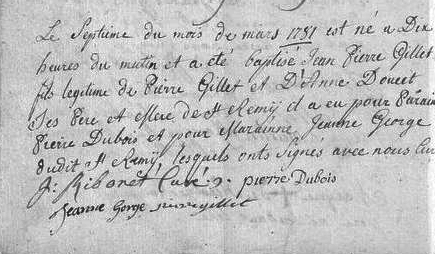 Le Septieme du mois de mars 1781 est né a Dix
heures du matin et a été baptisé Jean Pierre Gillet
fils legitime de Pierre Gillet et D'Anne Doucet
Ses Pere et Mere de St Remÿ il a eu pour Parain
Pierre Dubois et pour Marainne Jeanne George
dudit St Remÿ, lesquels onts Signes avec nous Curé
J. Ribonet Curé pierre Dubois
Jeanne Gorge pierregillet